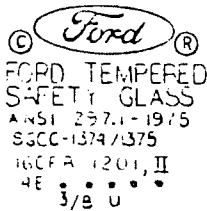 © Ford ®
FORD TEMPERED
SAFETY GLASS
ANSI Z97.1-1975
SGCC-1374/1375
16CFR 1201, II
3/8 U